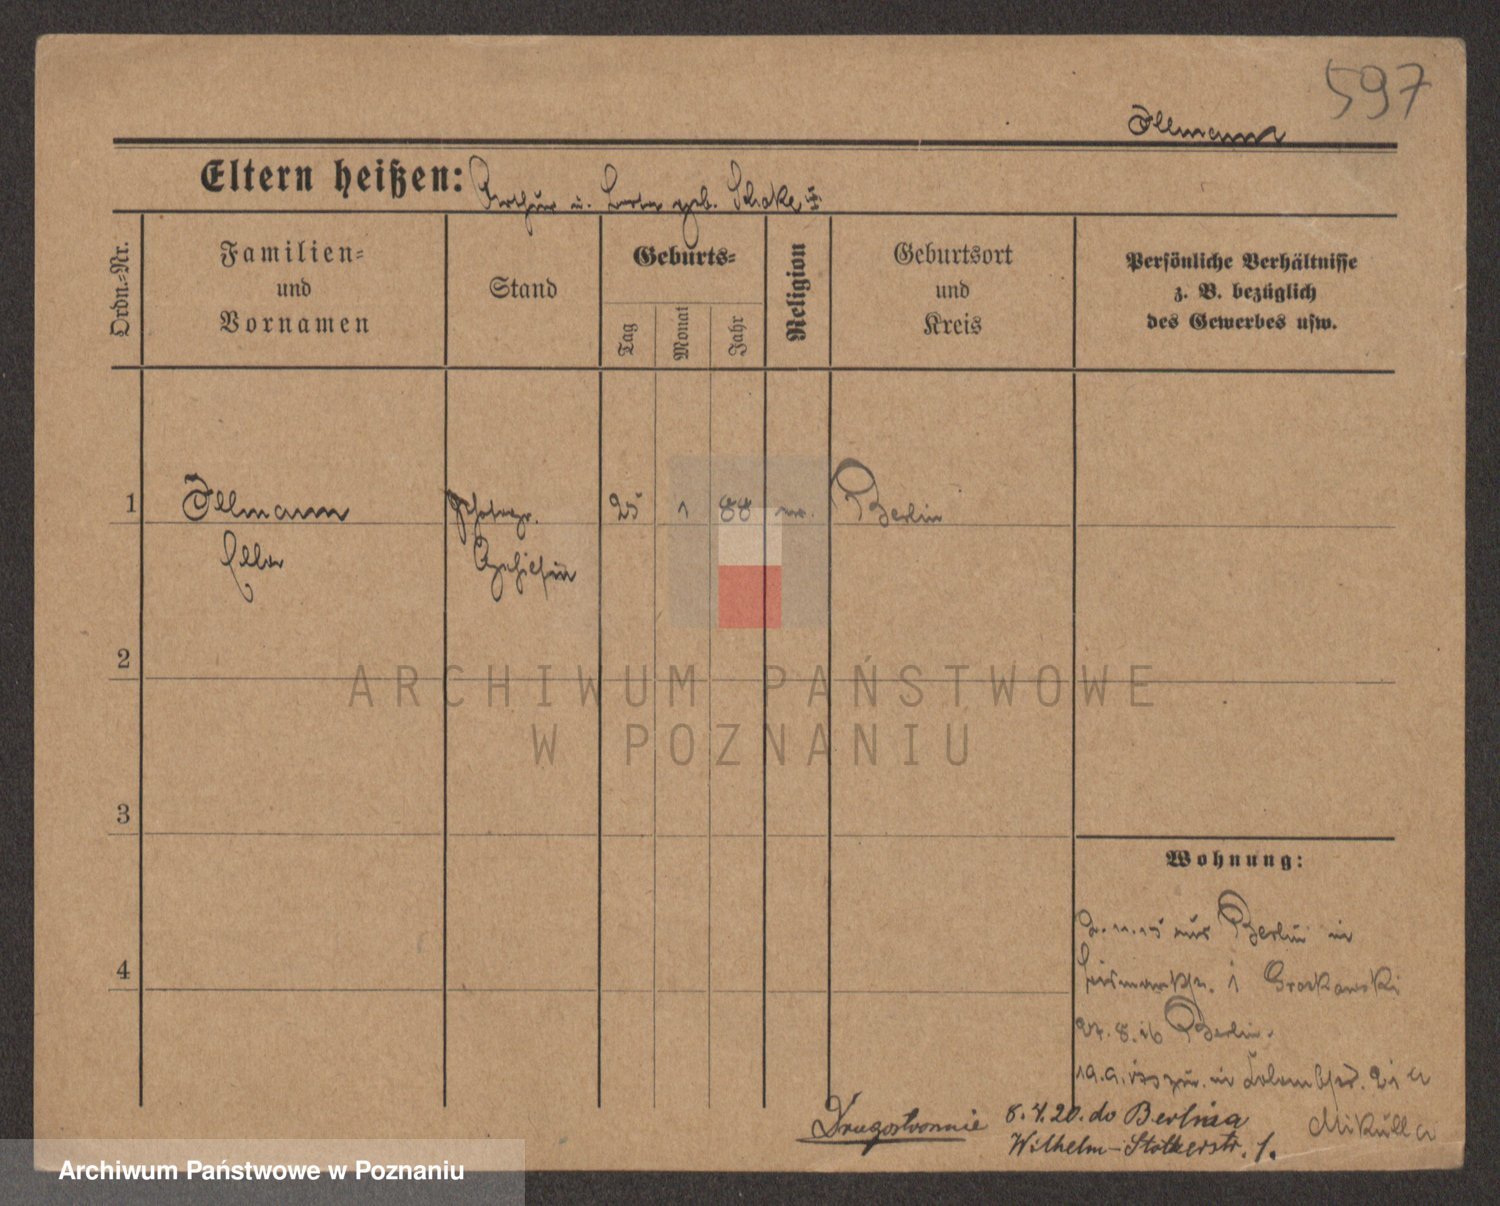 597
Illmann
Eltern heißen: Arthur u. geb.
Ordn.-Nr.
Familien=
und
Vornamen
Stand
Geburts=
Tag
Monat
Jahr
Religion
Geburtsort
und
Kreis
Persönliche Verhältnisse
z. B. bezüglich
des Gewerbes usw.
1 Illmann 25 1 88 Berlin
Ella
2
3
4
ARCHIWUM PAŃSTWOWE
W POZNANIU
Wohnung:
2.11.15 aus Berlin in
1 Groskowski
27.8.16 Berlin.
Mikulla
Drugostronnie 8.4.20. do Berlina
Wilhelm-Stolzestr. 1.
Archiwum Państwowe w Poznaniu